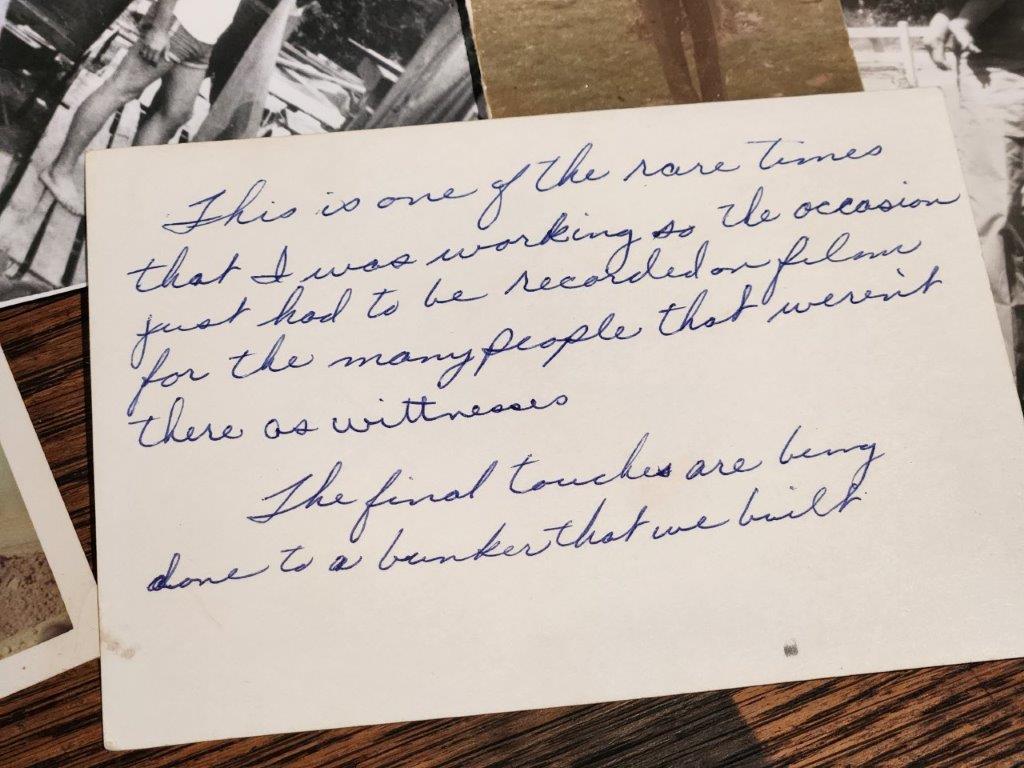 This is one of the rare times
that I was working so the occasion
just had to be recorded on film
for the many people that weren't
there as wittnesses
The final touches are being
done to a bunker that we built